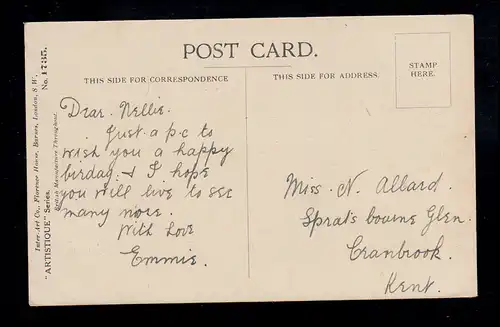 POST CARD.
THIS SIDE FOR CORRESPONDENCE
THIS SIDE FOR ADDRESS.
STAMP
HERE.
Inter-Art Co., Florence House, Barnes, London, S.W.
"ARTISTIQUE" Series.
No. 1735.
British Manufacture Throughout.
Dear Nellie.
Just a p.c to
wish you a happy
birday. & I hope
you will live to see
many more.
With Love
Emmie.
Miss. N. Allard.
Sprat's bourne Glen.
Cranbrook.
Kent.